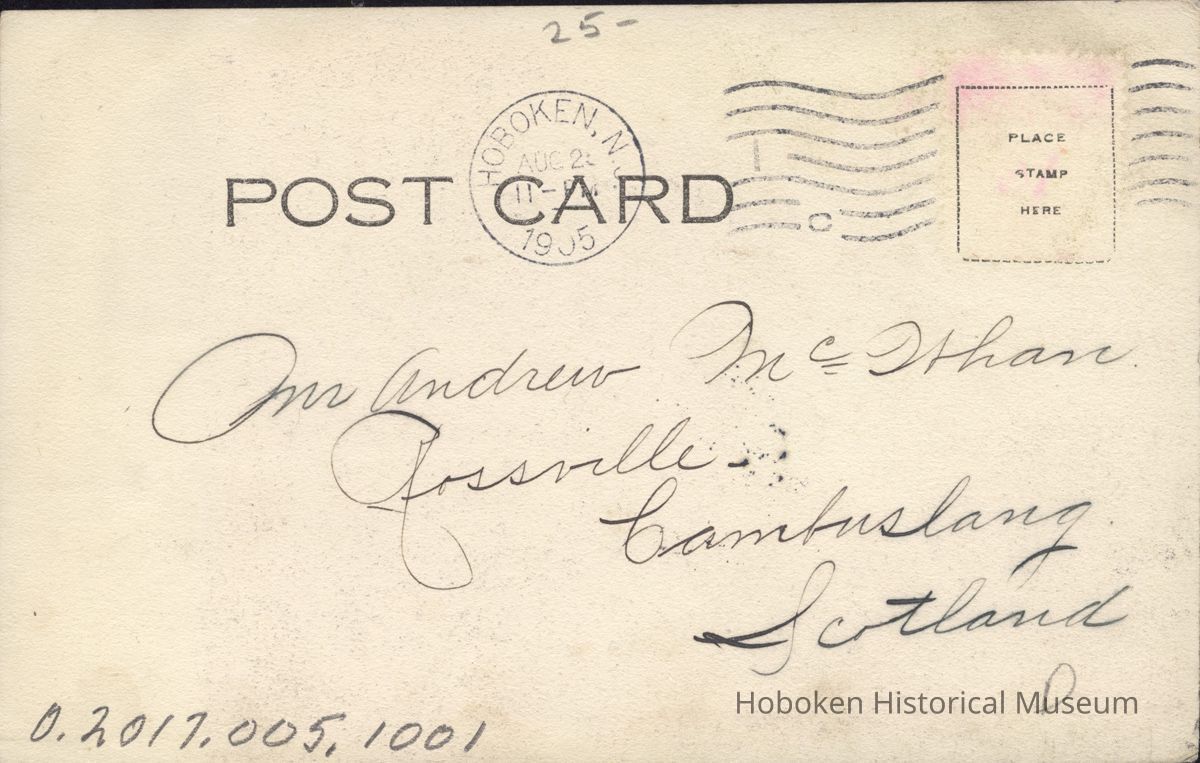 25-
HOBOKEN, N.J.
AUG 2
11-PM
1905
POST CARD
C
PLACE
STAMP
HERE
Mr Andrew Mc Ithan
Rossville
Cambuslang
Scotland
Hoboken Historical Museum
0.2017.005.1001